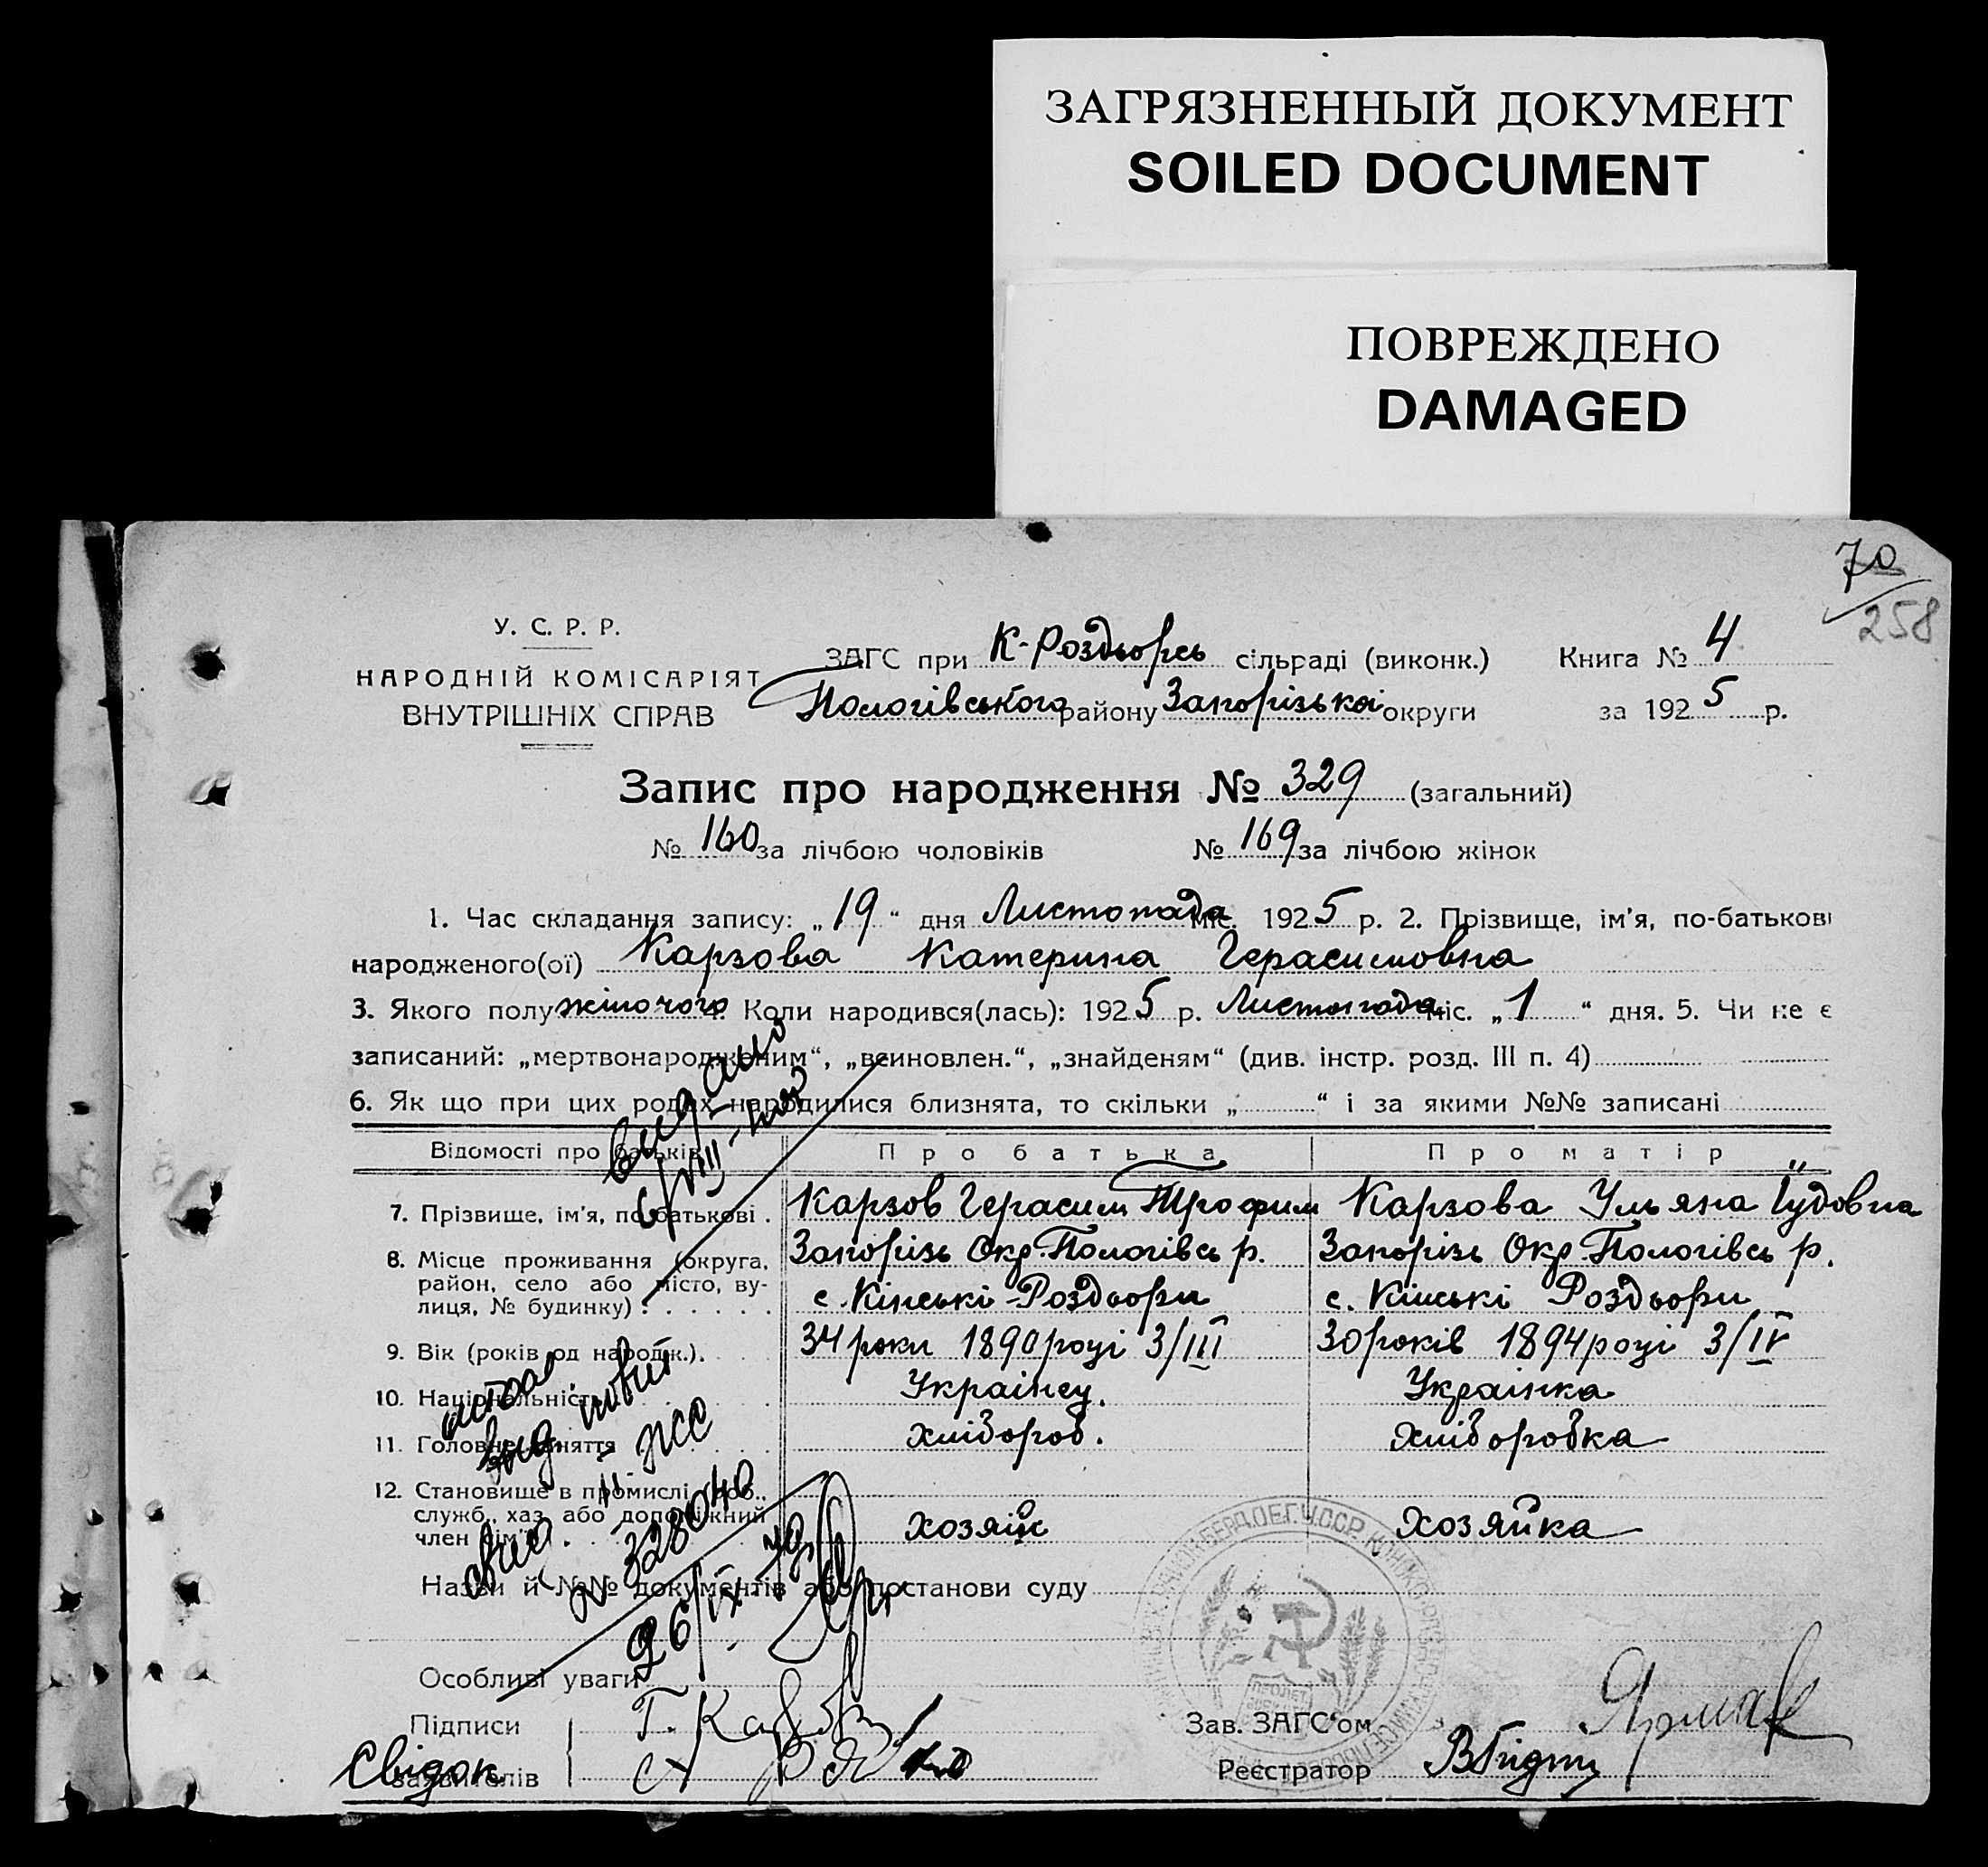 ЗАГРЯЗНЕННЫЙ ДОКУМЕНТ
SOILED DOCUMENT
ПОВРЕЖДЕНО
DAMAGED
70
258
У. С. Р. Р.
НАРОДНІЙ КОМІСАРІЯТ
ВНУТРІШНІХ СПРАВ
ЗАГС при К-Роздьорсь сільраді (виконк.) Книга № 4
Пологівського району Запорізької округи за 1925 р.
Запис про народження № 329 (загальний)
№ 160 за лічбою чоловіків № 169 за лічбою жінок
1. Час складання запису: „19“ дня Листопада міс. 1925 р. 2. Прізвище, ім'я, по-батькові
народженого(ої) Карзова Катерина Герасимовна
3. Якого полу жіночого 4. Коли народився(лась): 1925 р. Листопада міс. „1“ дня. 5. Чи не є
записаний: „мертвонародженим“, „всиновлен.“, „знайденям“ (див. інстр. розд. III п. 4)
6. Як що при цих родах народилися близнята, то скільки „ “ і за якими №№ записані
Відомості про батьків Про батька Про матір
7. Прізвище, ім'я, по-батькові . Карзов Герасим Трофим Карзова Ульяна Іудовна
8. Місце проживання (округа, Запоріз Окр. Пологівсь р. Запоріз Окр. Пологівсь р.
район, село або місто, ву-
лиця, № будинку) с. Кінські-Роздьори с. Кінські Роздьори
9. Вік (років од народж.). 34 роки 1890 році 3/III 30 років 1894 році 3/IV
10. Національність Українец. Українка
11. Головне заняття хлібороб. хліборобка
12. Становище в промислі, роб.,
служб., хаз. або допоміжний
член сім'ї хозяїн хозяйка
Назви й №№ документів або постанови суду
Особливі уваги
видано
№ 328040
26/IX
Підписи Г. Карзов
Зав. ЗАГС'ом Ярмак
Свідок
заявителів
Реєстратор